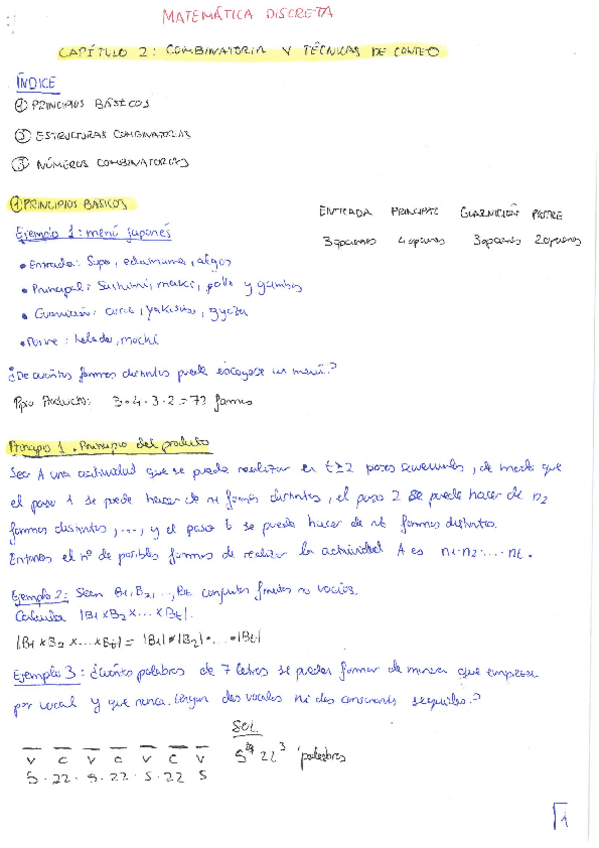 MATEMÁTICA DISCRETA
CAPÍTULO 2: COMBINATORIA Y TÉCNICAS DE CONTEO
ÍNDICE
① PRINCIPIOS BÁSICOS
② ESTRUCTURAS COMBINATORIAS
③ NÚMEROS COMBINATORIOS
① PRINCIPIOS BASICOS
ENTRADA PRINCIPAL GUARNICIÓN POSTRE
3 opciones 4 opciones 3 opciones 2 opciones
Ejemplo 1: menú japonés
• Entrada: Sopa, edamame, algas
• Principal: Sashimi, maki, pollo y gambas
• Guarnición: arroz, yakisoba, gyoza
• Postre: helado, mochi
¿De cuántas formas distintas puede escogerse un menú?
Ppio Producto: 3·4·3·2 = 72 formas
Principio 1. Principio del producto
Sea A una actividad que se puede realizar en t≥2 pasos sucesivos, de modo que
el paso 1 se puede hacer de n1 formas distintas, el paso 2 se puede hacer de n2
formas distintas, ..., y el paso t se puede hacer de nt formas distintas.
Entonces el nº de posibles formas de realizar la actividad A es n1·n2·...·nt.
Ejemplo 2: Sean B1, B2, ..., Bt conjuntos finitos no vacíos.
Calcula |B1 x B2 x ... x Bt|.
|B1 x B2 x ... x Bt| = |B1|·|B2|·...·|Bt|
Ejemplo 3: ¿Cuánto palabras de 7 letras se pueden formar de manera que empiece
por vocal y que nunca tengan dos vocales ni dos consonantes seguidas?
Sol.
V C V C V C V 5⁴ 22³ palabras
5 · 22 · 5 · 22 · 5 · 22 5
1